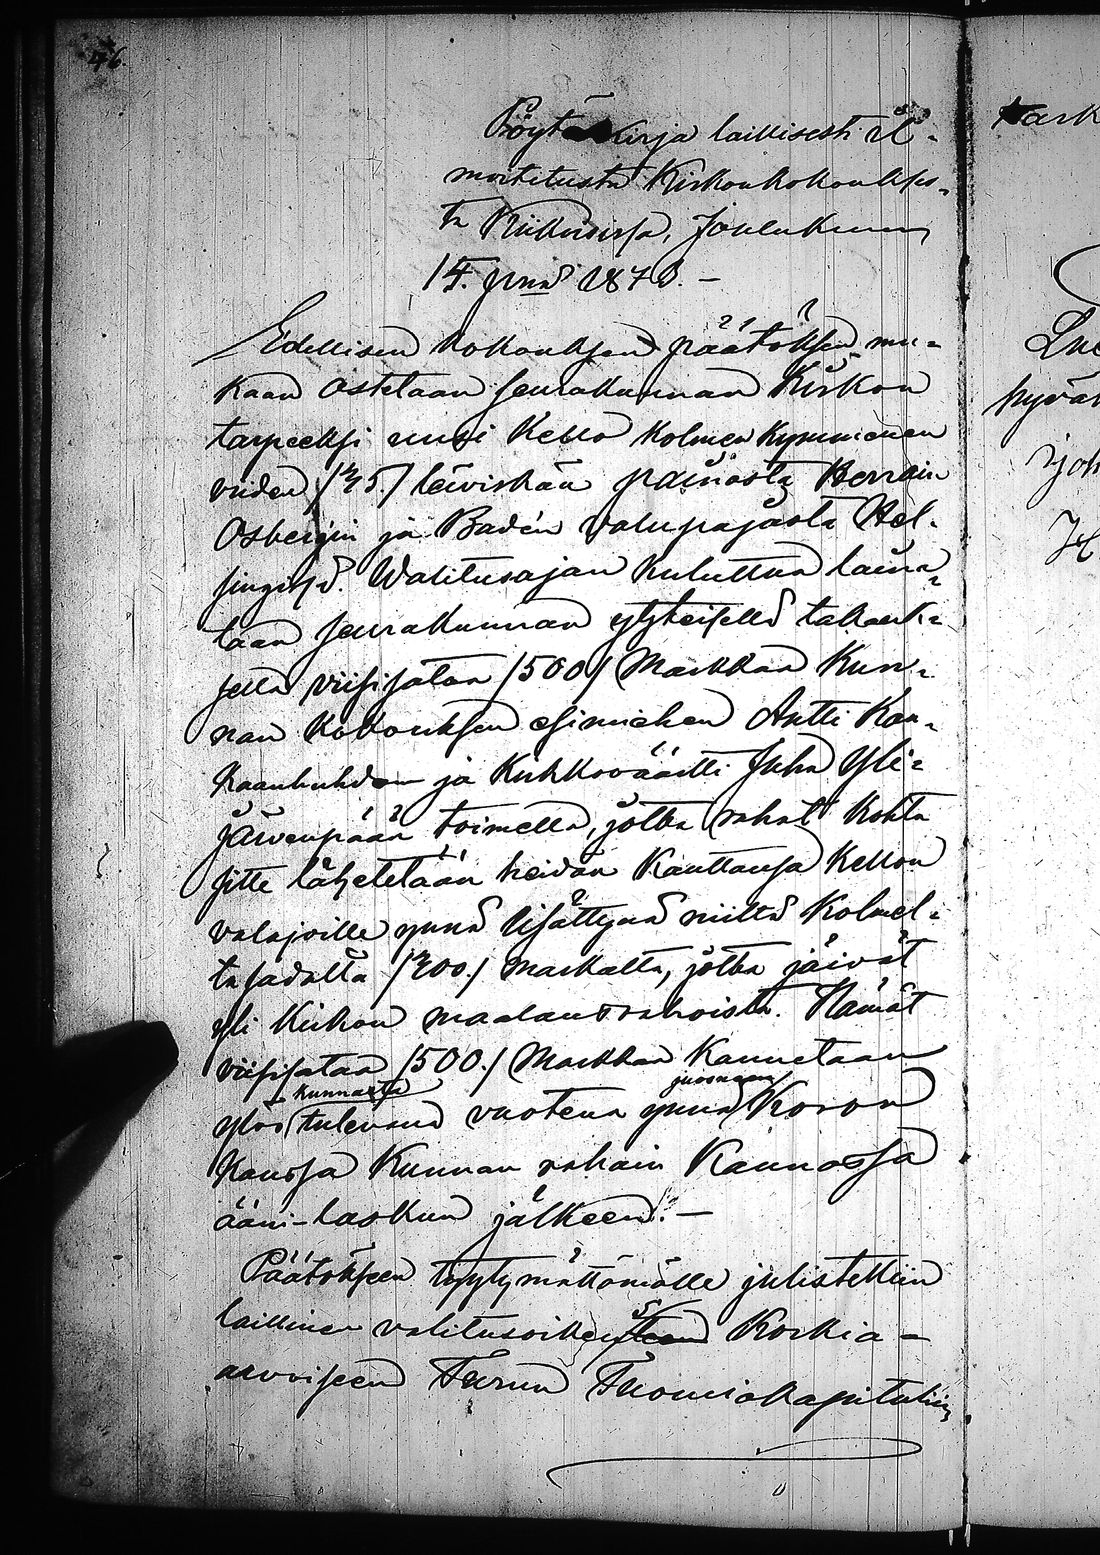 46.
Pöytäkirja laillisesti il-
moitetusta Kirkonkokoukses-
ta Kiikoisissa, Joulukuun
15. pnä 1878. —
Edellisen kokouksen päätöksen mu-
kaan ostetaan seurakunnan Kirkon
tarpeeksi uusi Kello kolmen kymmenen
viiden /35/ leiviskän painosta Herrain
Osbergin ja Badén valupajasta Hel-
singissä. Walitusajan kuluttua laina-
taan seurakunnan yhteisellä takauk-
sella viisisataa /500/ Markkaa Kun-
nan Kokouksen esimiehen Antti Kau-
haanhuhdan ja Kirkkoväärti Juha Yli-
järwenpään toimella, jotka rahat kohta
sitte lähetetään heidän kauttansa Kellon
valajoille ynnä lisättynä niiltä kolmel-
ta sadalta /300./ markalta, jotka jäivät
yli Kirkon maalausrahoista. Nämät
viisisataa /500./ Markkaa Kannetaan
kunnasta juoksevan
ylös tulevana vuotena ynnä Koron
kanssa Kunnan rahain Kannossa
ääni-laskun jälkeen. —
Päätökseen tyytymättömälle julistettiin
laillinen valitusoikeus Korkia-
arvoiseen Turun Tuomiokapituliin,
Tark
Lue
hyväk
Joh